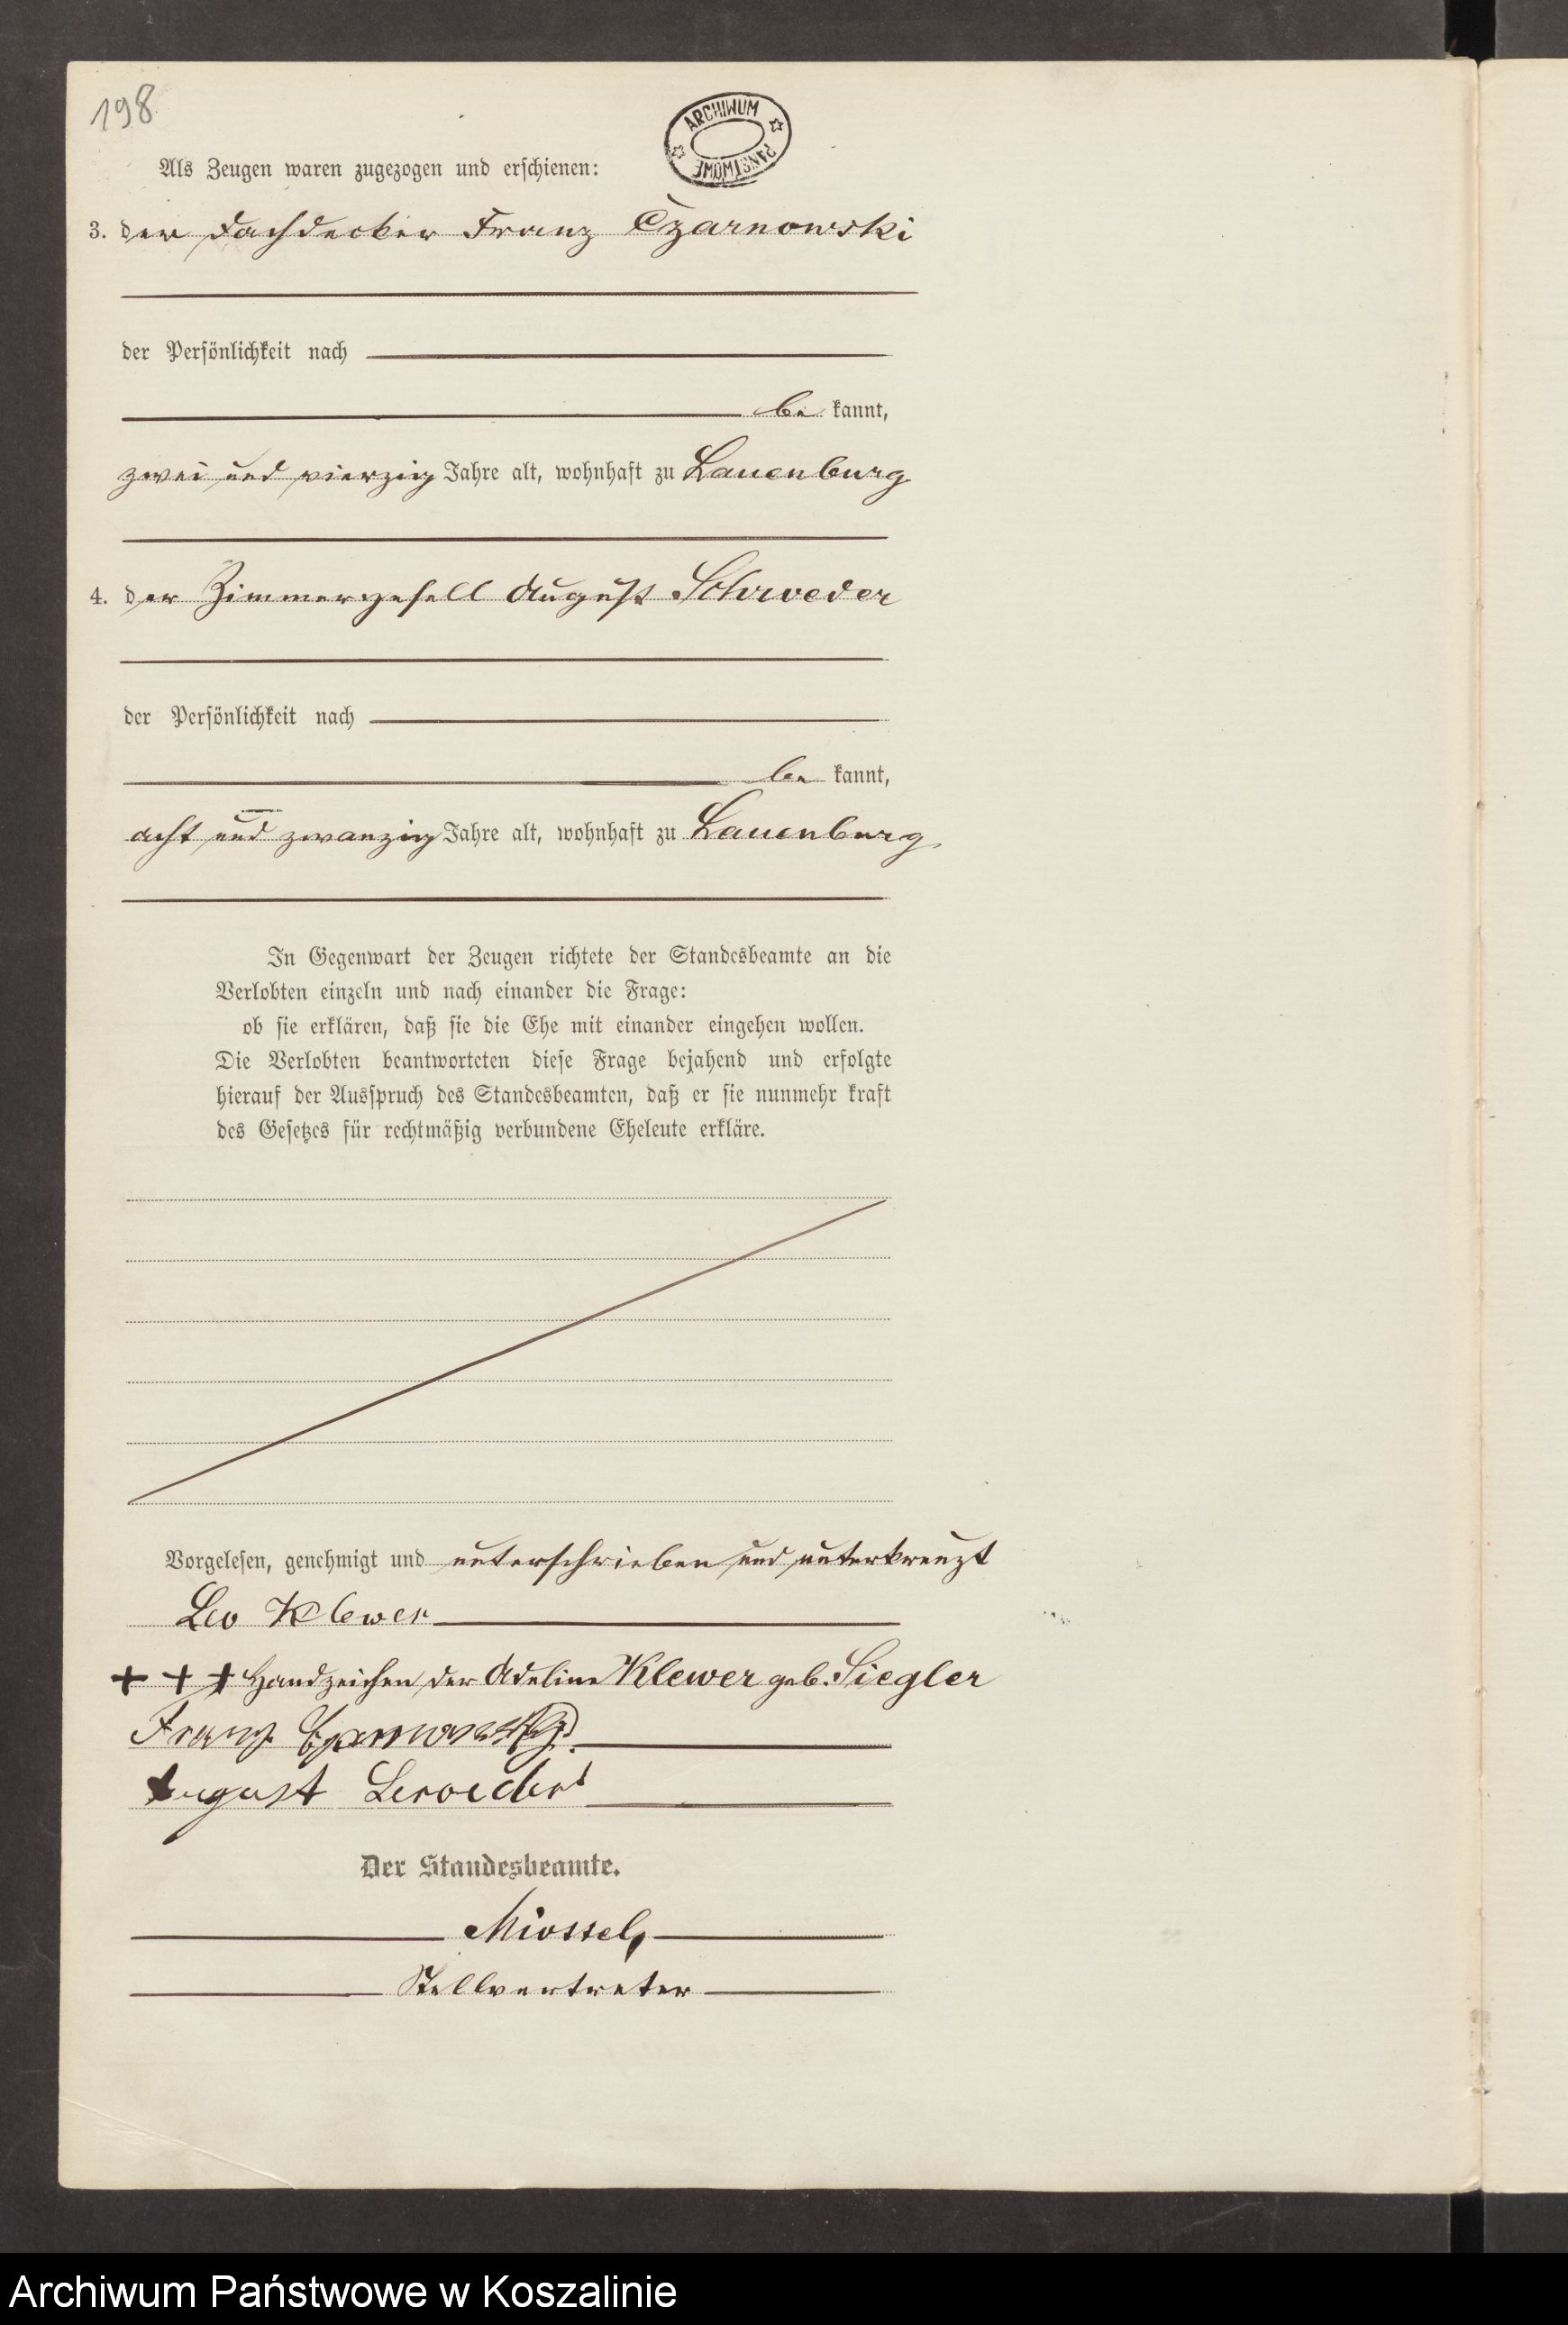 198
ARCHIWUM PAŃSTWOWE
Als Zeugen waren zugezogen und erschienen:
3. der Dachdecker Franz Czarnowski
der Persönlichkeit nach
be kannt,
zwei und vierzig Jahre alt, wohnhaft zu Lauenburg
4. der Zimmergesell August Schroeder
der Persönlichkeit nach
be kannt,
acht und zwanzig Jahre alt, wohnhaft zu Lauenburg,
In Gegenwart der Zeugen richtete der Standesbeamte an die
Verlobten einzeln und nach einander die Frage:
ob sie erklären, daß sie die Ehe mit einander eingehen wollen.
Die Verlobten beantworteten diese Frage bejahend und erfolgte
hierauf der Ausspruch des Standesbeamten, daß er sie nunmehr kraft
des Gesetzes für rechtmäßig verbundene Eheleute erkläre.
Vorgelesen, genehmigt und unterschrieben und unterkreuzt
Leo Klewer
+ + + Handzeichen der Adeline Klewer geb. Siegler
Franz
August
Der Standesbeamte.
Miossel,
Stellvertreter
Archiwum Państwowe w Koszalinie